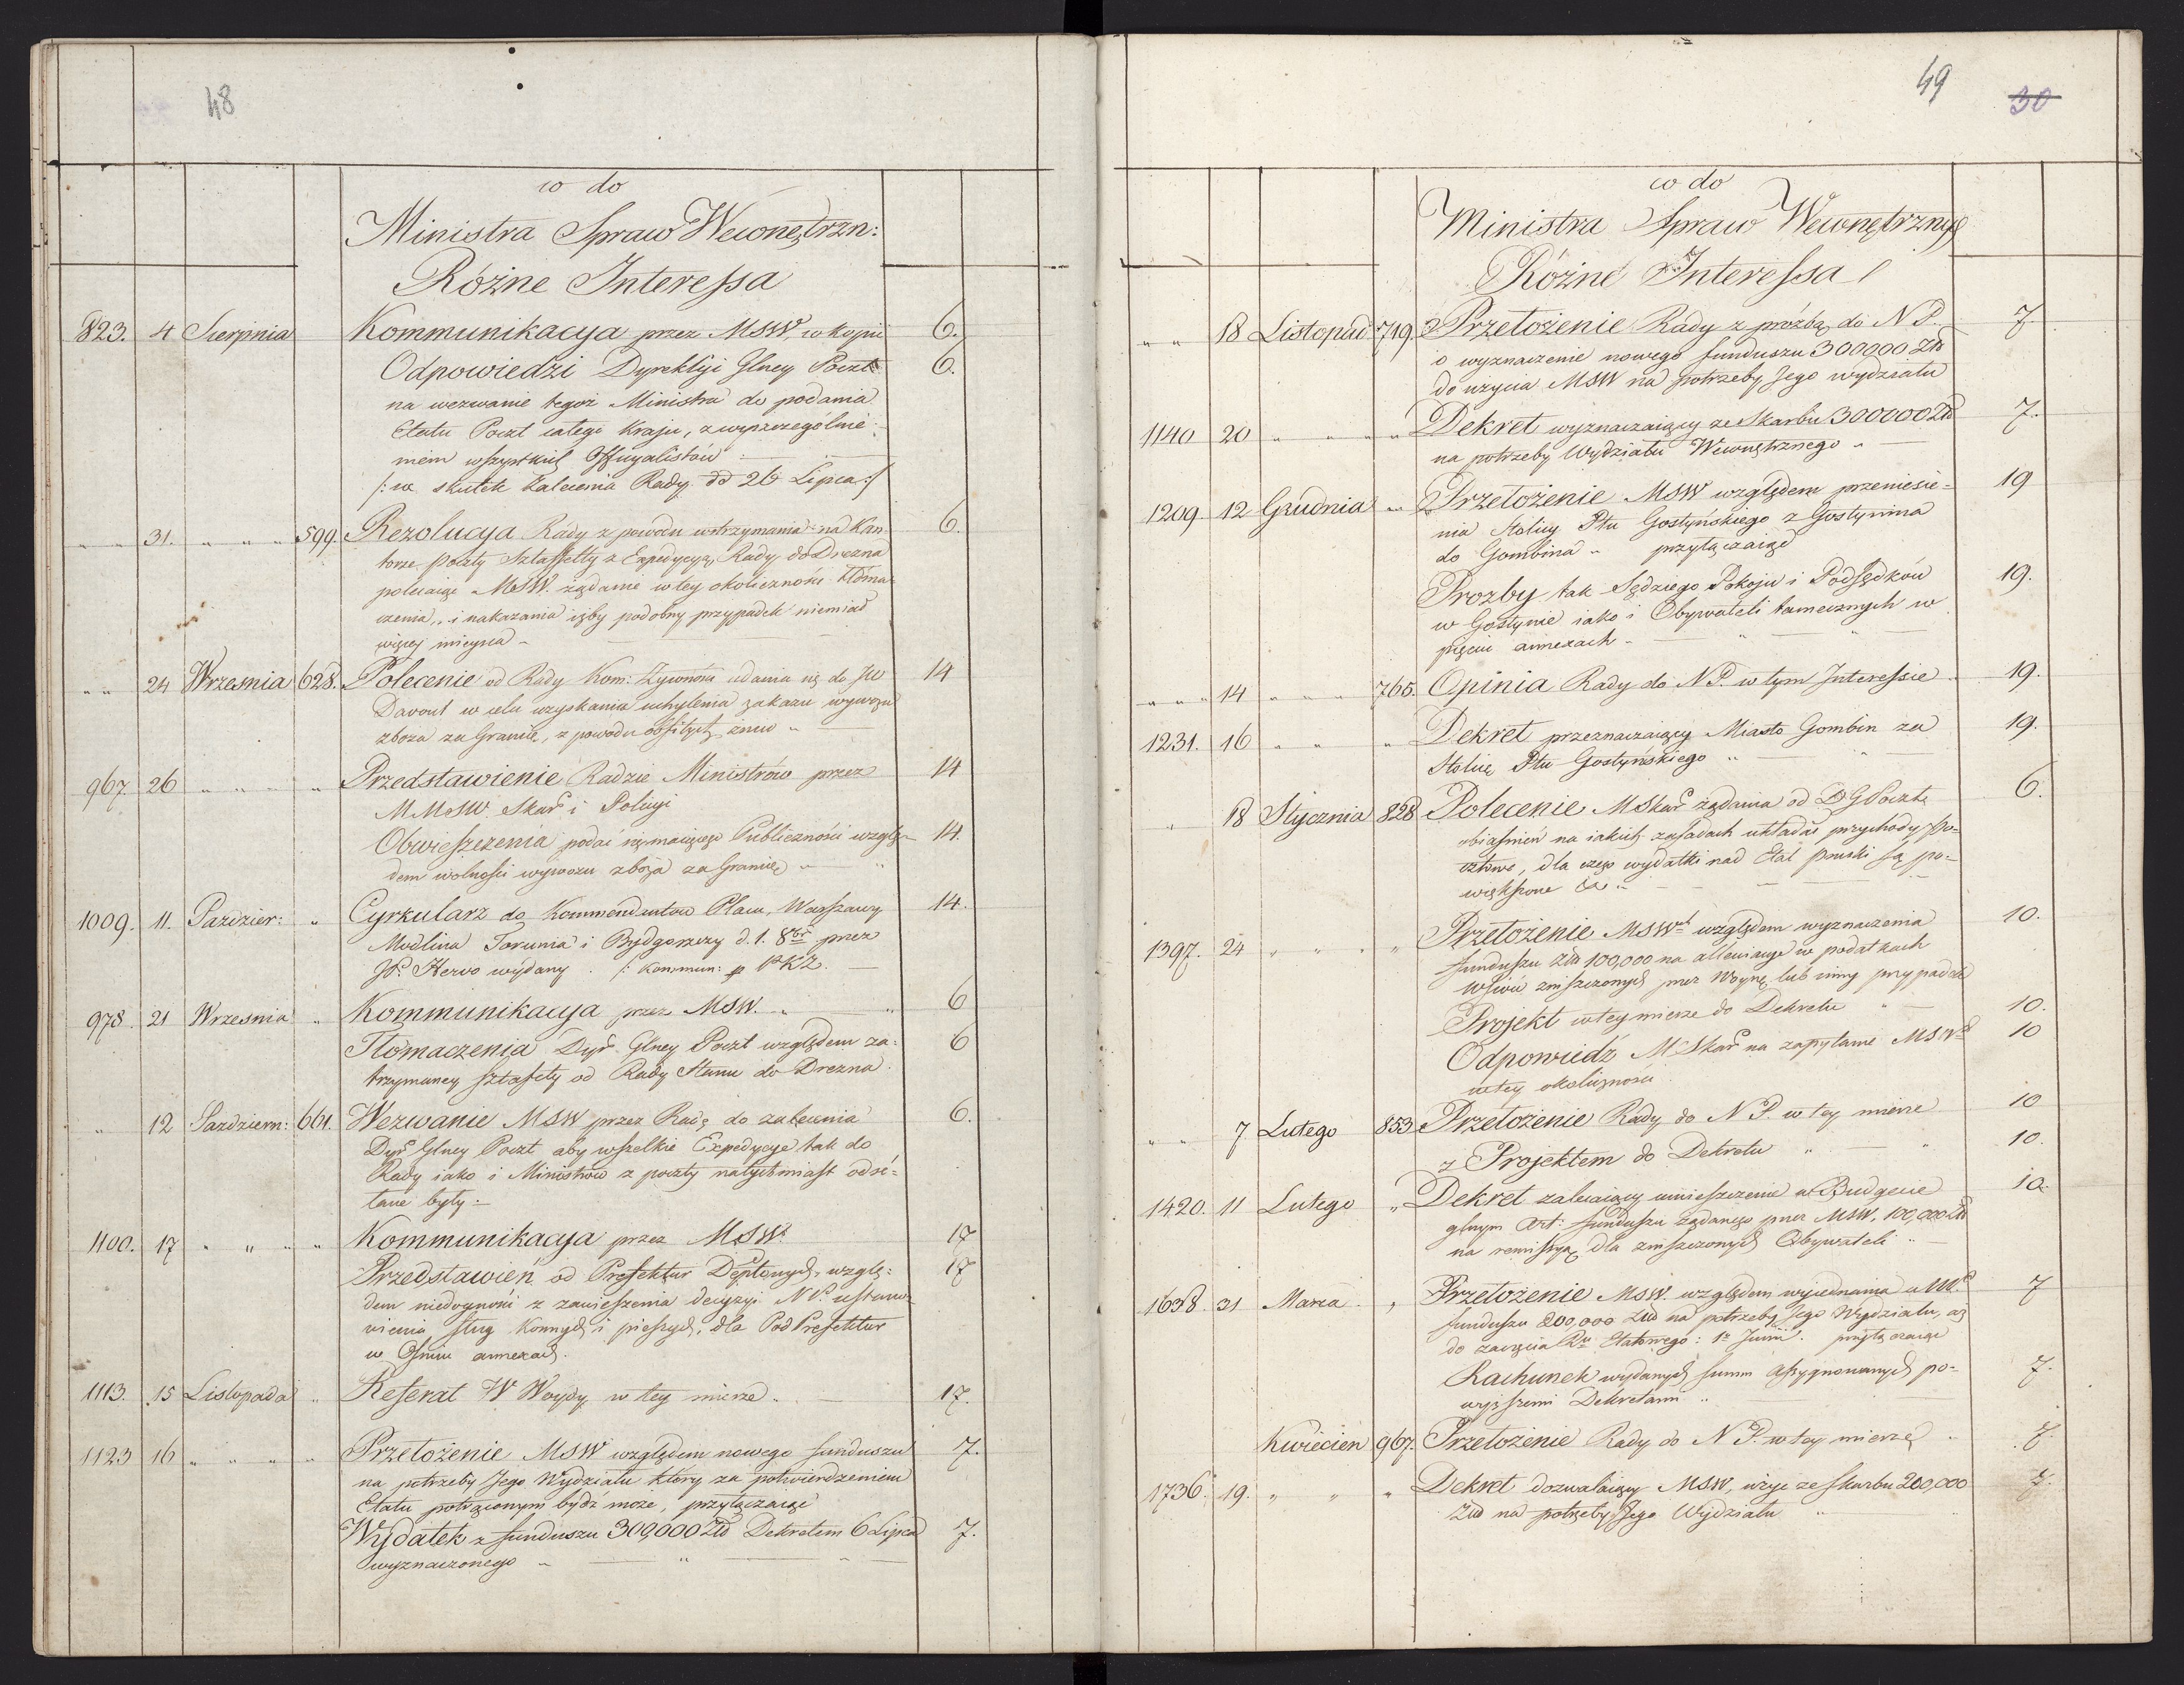 48
co do
Ministra Spraw Wewnętrzn:
Różne Interessa
823. 4 Sierpnia Kommunikacya przez MSW, w kopii 6.
Odpowiedzi Dyrekcyi Glney Poczt 6.
na wezwanie tegoż Ministra do podania
Etatu Poczt całego Kraju, z wyszczególnie-
niem wszystkich Officyalistów
/: w skutek Zalecenia Rady dd 26 Lipca :/
" " 31. " " " 599. Rezolucya Rady z powodu wstrzymania na Kan- 6.
torze poczty Sztaffetty z Expedycyą Rady do Drezna
polecaiąc MSW. żądanie w tey okoliczności tłóma-
czenia, i nakazania iżby podobny przypadek niemiał
więcey mieysca -
" " 24 Wrzesnia 628. Polecenie od Rady Kom: Żywności udania się do JW 14
Davout w celu uzyskania uchylenia zakazu wywozu
zboża za Granicę, z powodu obfitych żniw "
967. 26 " " " " Przedstawienie Radzie Ministrów przez 14
MMSW. Skar i Policyi
Obwieszczenia podać się maiącego Publiczności wzglę- 14.
dem wolności wywozu zboża za Granicę "
1009. 11. Pazdzier: " Cyrkularz do Kommendantów Placu, Warszawy 14.
Modlina Torunia i Bydgoszczy d. 1. 8br przez
JP. Hervo wydany . /: kommun: p PKZ.
978. 21 Wrzesnia " Kommunikacya przez MSW. " 6
Tłomaczenia Dyr. Glney Poczt względem za- 6
trzymaney sztafety od Rady Stanu do Drezna.
" 12 Pazdziern: 661. Wezwanie MSW przez Radę do zalecenia 6.
Dyr Glney Poczt aby wszelkie Expedycye tak do
Rady iako i Ministrów z poczty natychmiast odsé-
łane były -
1100. 17 " " " " Kommunikacya przez MSW. 17
Przedstawień od Prefektur Deptowych, wzglę- 17
dem niedogności z zawieszenia decyzyi NP. ustano-
wienia sług Konnych i pieszych, dla PodPrefektur
w Osmiu annexach.
1113. 15 Listopada " Referat W Woydy w tey mierze . 17.
1123 16 " " " " Przełożenie MSW względem nowego funduszu 7.
na potrzeby Jego Wydziału który za potwierdzeniem
Etatu potrąconym bydź może, przyłączaiąc
Wydatek z funduszu 300,000 Zło Dekretem 6 Lipca 7.
wyznaczonego "
49
30
co do
Ministra Spraw Wewnętrznych
Różne Interessa
" " 18 Listopad 719. Przełożenie Rady z prózbą do N P. 7.
o wyznaczenie nowego funduszu 300000 Zło
do użycia MSW na potrzeby Jego wydziału
1140 20 " " " " Dekret wyznaczaiący ze Skarbu 300000 Zło 7.
na potrzeby Wydziału Wewnętrznego "
1209. 12 Grudnia " Przełożenie MSW względem przeniesie- 19
nia stolicy Ptu Gostyńskiego z Gostynina
do Gombina " przyłączaiąc
Prozby tak Sędziego Pokoju i Podsędków 19.
w Gostynie iako i Obywateli tamecznych w
pięciu annexach -
" " " 14 " " " 765. Opinia Rady do N P. w tym Interessie 19.
1231. 16 " " " Dekret przeznaczaiący Miasto Gombin za 19.
Stolicę Ptu Gostyńskiego "
" 18 Stycznia 828 Polecenie MSkar żądania od DGPoczt 6.
obiaśnień na iakich zasadach układał przychody po-
cztowe, dla czego wydatki nad Etat pruski są po-
większone &c "
1397. 24 " " " " Przełożenie MSW względem wyznaczenia 10.
funduszu Zło 100,000 na allewiacye w podatkach
Włości zniszczonych przez Woynę lub inny przypadek
Projekt w tey mierze do Dekretu " 10.
Odpowiedź MSkar na zapytanie MSW 10
w tey okoliczności .
" " 7 Lutego 853 Przełożenie Rady do N P. w tey mierze 10
z Projektem do Dekretu " 10.
1420. 11 Lutego " Dekret zalecaiący umieszczenie w Budgecie 10.
glnym Art: funduszu żądanego przez MSW. 100,000 Zło
na remissyą dla zniszczonych Obywateli "
1638. 31 Marca . " Przełożenie MSW. względem wyiednania 7
funduszu 200,000 Zło na potrzeby Jego Wydziału, aż
do zaczęcia Ru Etatowego: 1o Junii. przyłączaiąc
Rachunek wydanych summ assygnowanych po- 7.
wyższemi Dekretami "
Kwiecień 967. Przełożenie Rady do N P. w tey mierzę " 7.
1736. 19. " " " Dekret dozwalaiący MSW, użyć ze skarbu 200,000 7.
Zło na potrzeby Jego Wydziału "